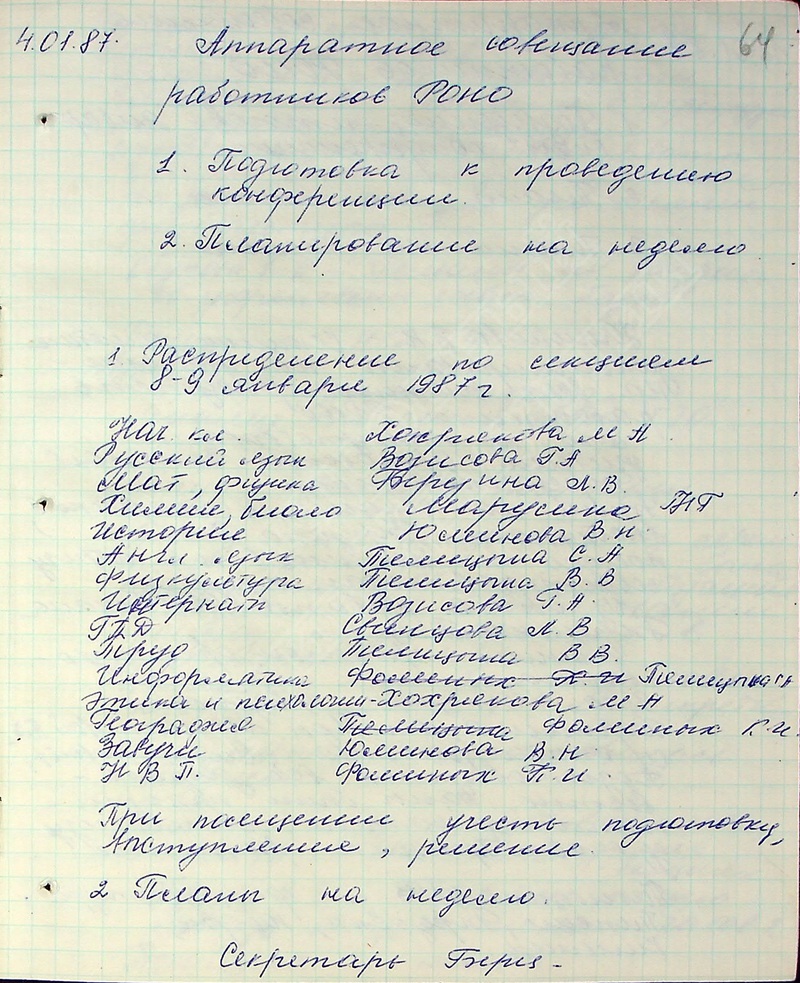 4.01.87. Аппаратное совещание 64
работников РОНО
1. Подготовка к проведению
конференции.
2. Планирование на неделю
1 Распределение по секциям
8-9 января 1987 г.
Нач. кл. Хохрякова М А.
Русский язык Возисова Г. А
Мат, физика Л. В.
Химия, биоло Марусина
История Юминова В Н.
Англ. язык Пелицына С. А
Физкультура Пелицына В. В
Интернаты Возисова Г. А.
ГПД Свинцова Л. В
Труд Пелицына В В.
Информатика Фоминых Пелицына
Этика и психологии - Хохрякова М А
География Пелицына Фоминых Г. И.
Завучи Юминова В. Н.
Н В П. Фоминых Г. И.
При посещении учесть подготовку,
выступление, решение.
2 Планы на неделю.
Секретарь